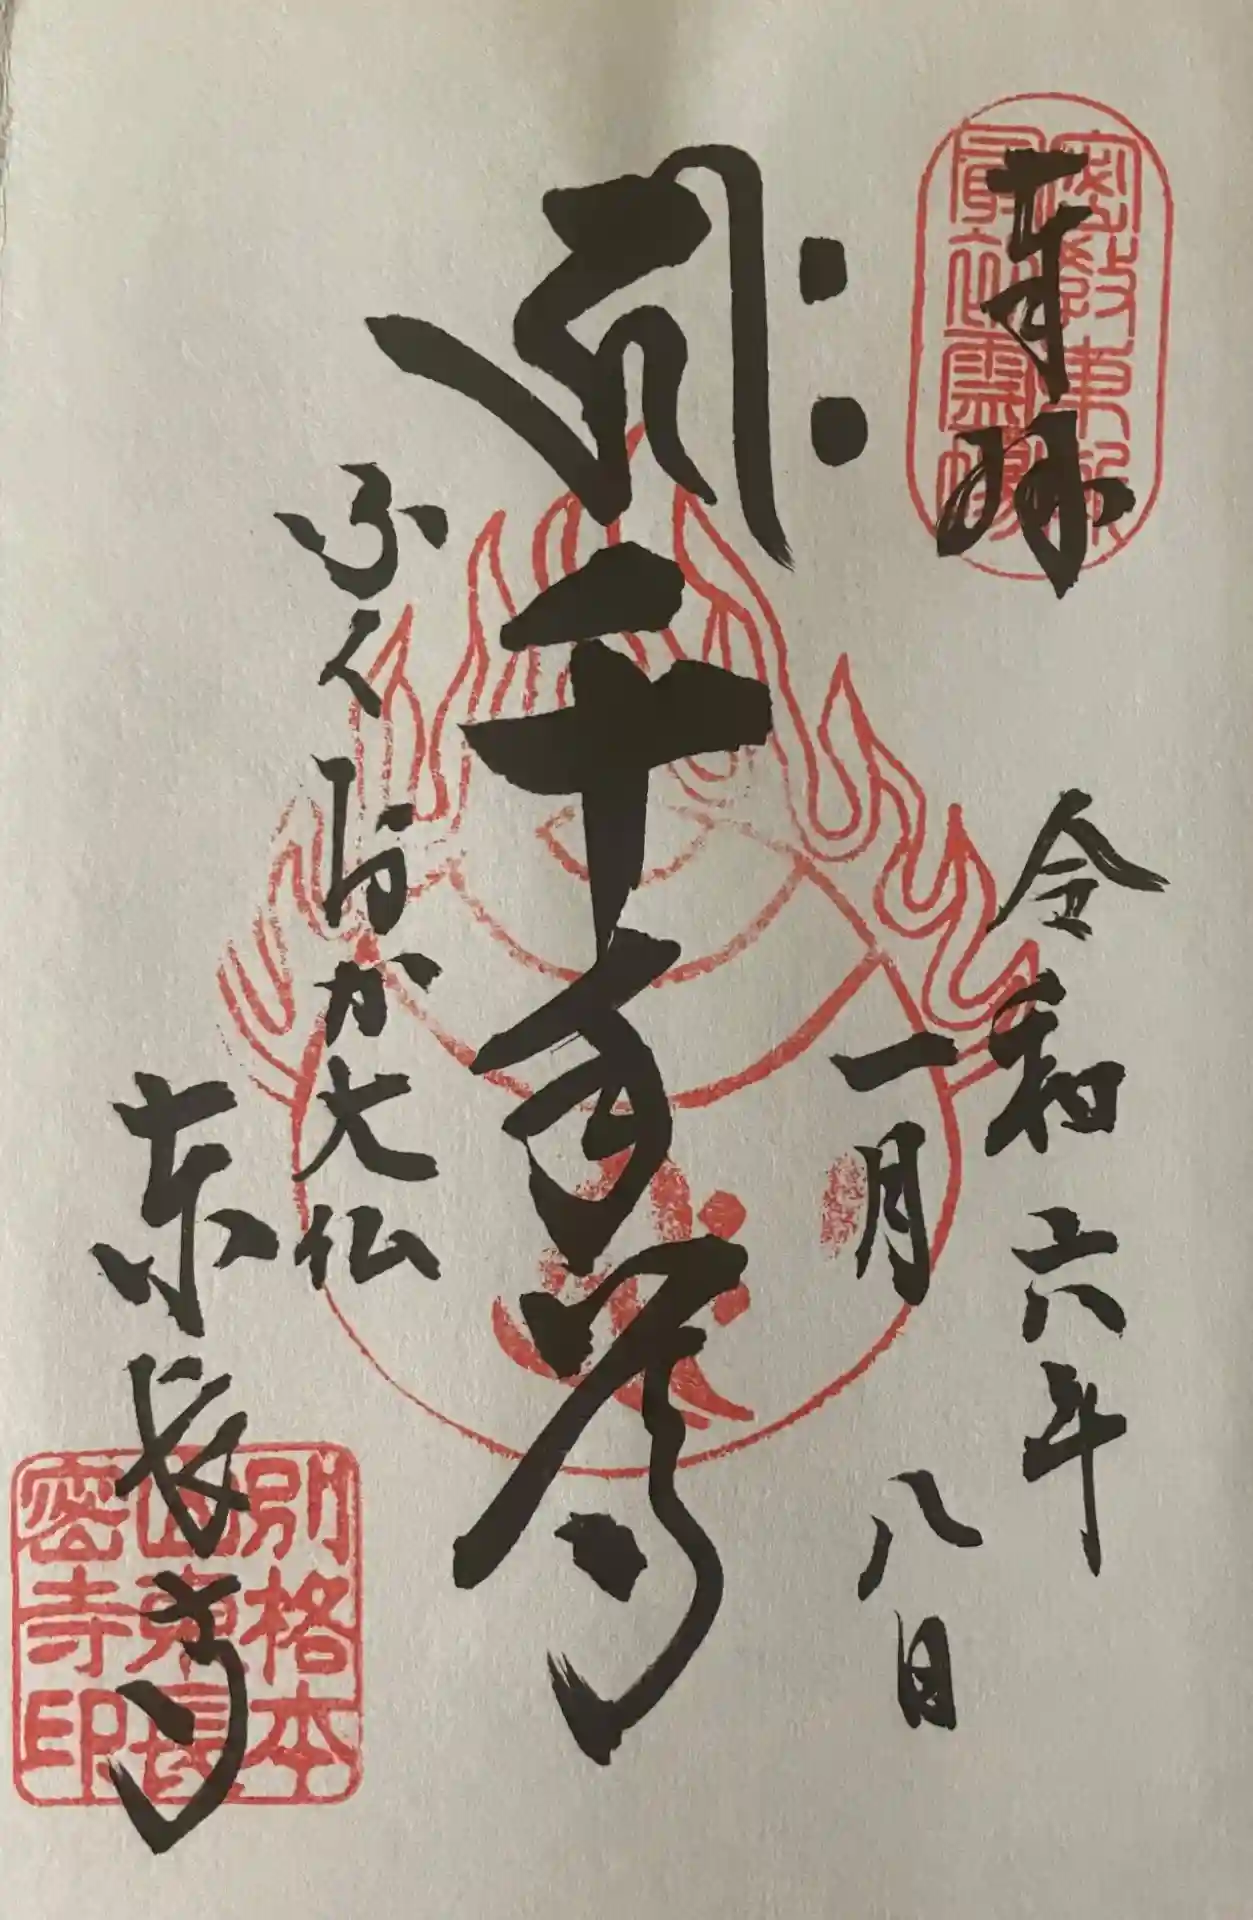 奉拝
密教東漸
最初霊場
令和六年
一月八日
𑖮𑖿𑖨𑖱𑖾
千手尊
ふくおか大仏
東長寺
別格本
山東長
密寺印